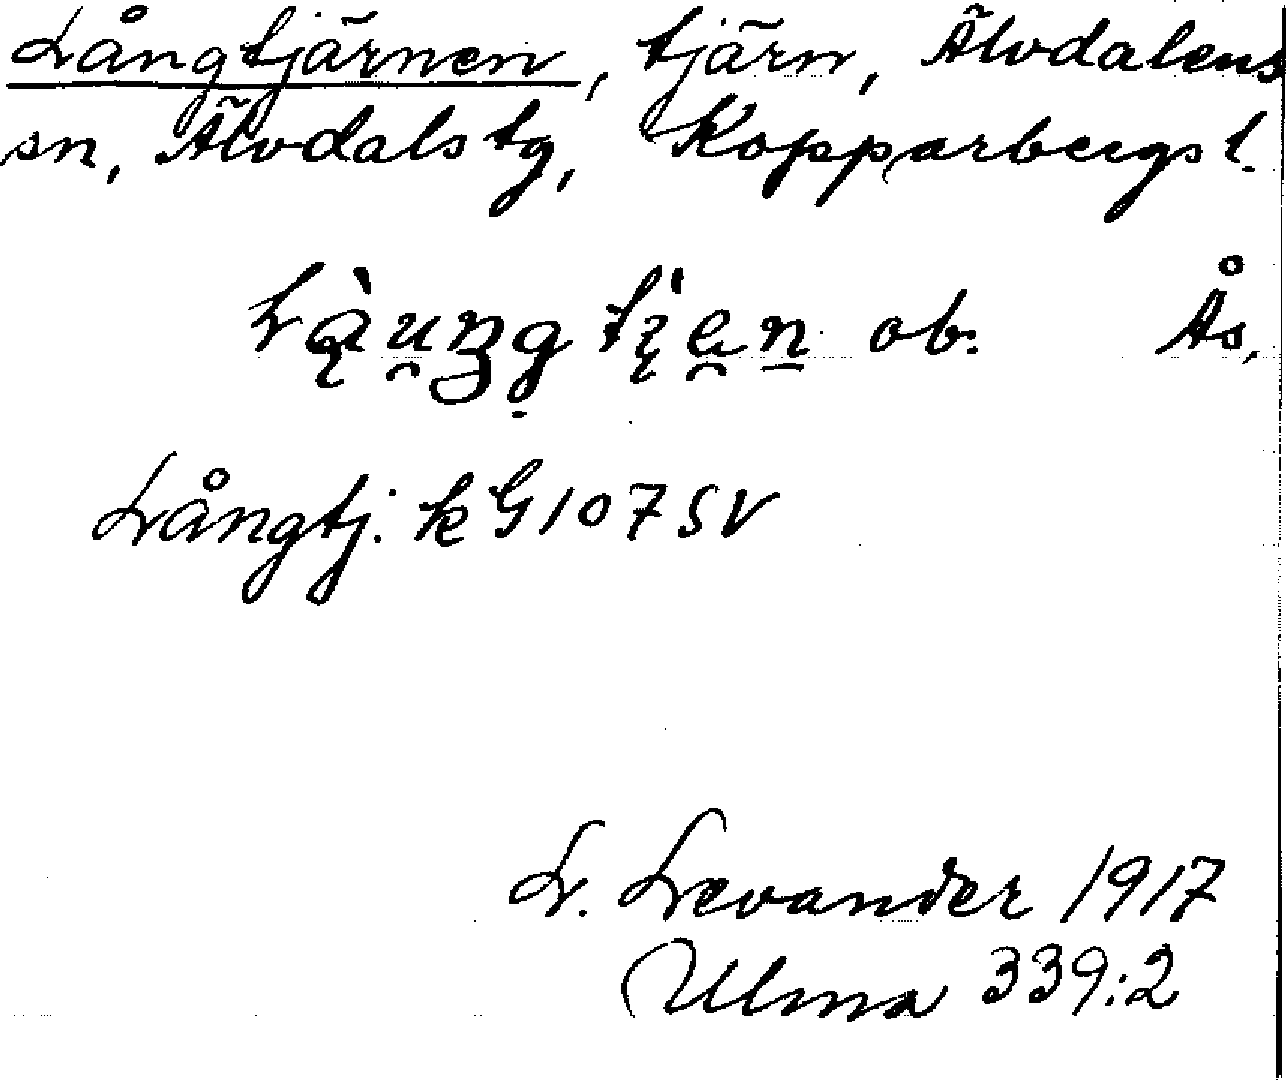 Långtjärnen, tjärn, Älvdalens
sn, Älvdals tg, Kopparbergs l.
ob. Ås,
Långtj. k G 107 SV
L. Levander 1917
Ulma 339:2